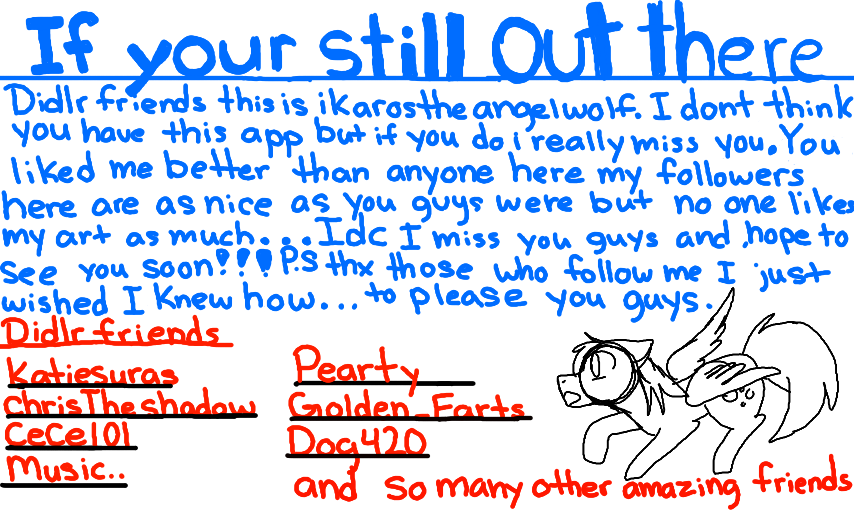 If your still Out there
Didlr friends this is ikarostheangelwolf. I dont think
you have this app but if you do i really miss you. You
liked me better than anyone here my followers
here are as nice as you guys were but no one likes
my art as much... Idc I miss you guys and hope to
see you soon!!! P.S thx those who follow me I just
wished I knew how... to please you guys.
Didlr friends
Katiesuras
chrisTheshadow
CeCe101
Music..
Pearty
Golden_Farts
Dog420
and so many other amazing friends